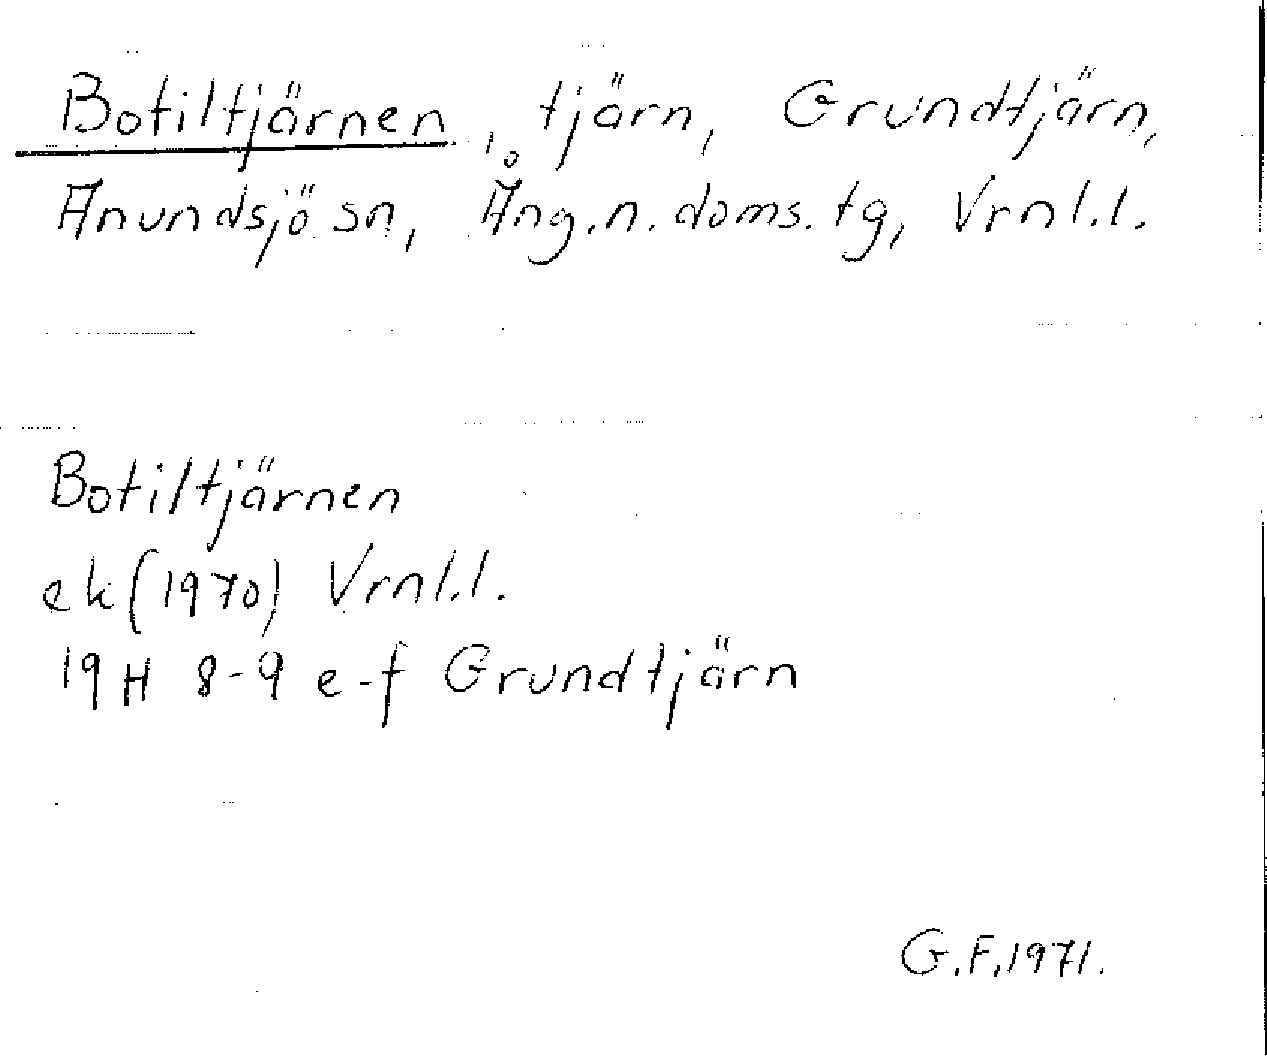 Botiltjärnen, tjärn, Grundtjärn,
Anundsjö sn, Ång.n. doms. tg, Vrnl.l.
Botiltjärnen
ek (1970) Vrnl.l.
19 H 8-9 e-f Grundtjärn
G.F. 1971.